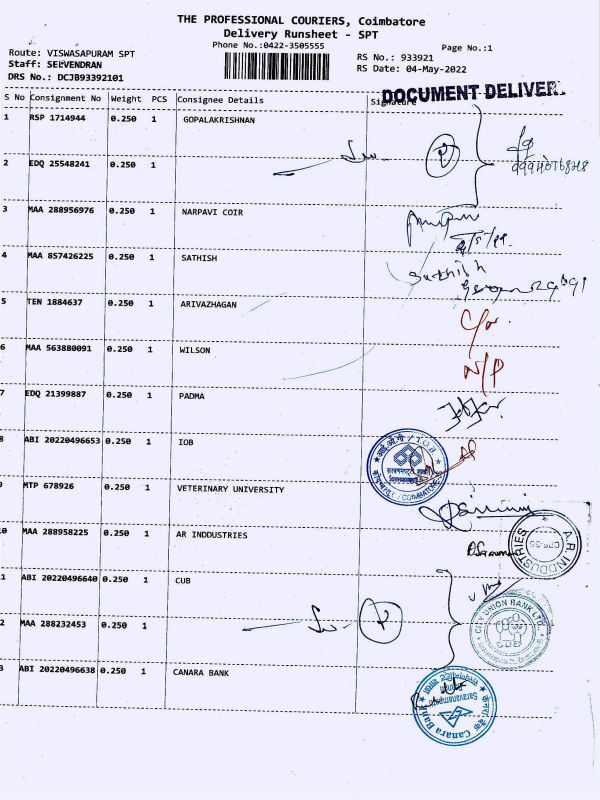 THE PROFESSIONAL COURIERS, Coimbatore
Delivery Runsheet - SPT
Phone No.:0422-3505555
Page No.:1
Route: VISWASAPURAM SPT
RS No.: 933921
Staff: SELVENDRAN
RS Date: 04-May-2022
DRS No.: DCJB93392101
DOCUMENT DELIVER
S No Consignment No Weight PCS Consignee Details Signature
1 RSP 1714944 0.250 1 GOPALAKRISHNAN
2 EDQ 25548241 0.250 1
3 MAA 288956976 0.250 1 NARPAVI COIR
4 MAA 857426225 0.250 1 SATHISH
Sathish
5 TEN 1884637 0.250 1 ARIVAZHAGAN
6 MAA 563880091 0.250 1 WILSON
N/P
7 EDQ 21399887 0.250 1 PADMA
8 ABI 20220496653 0.250 1 IOB
I.O.B
COIMBATORE
9 MTP 678926 0.250 1 VETERINARY UNIVERSITY
10 MAA 288958225 0.250 1 AR INDDUSTRIES
A.R. INDUSTRIES
11 ABI 20220496640 0.250 1 CUB
CITY UNION BANK LTD.
2 MAA 288232453 0.250 1
3 ABI 20220496638 0.250 1 CANARA BANK
Saravanampatti
Canara Bank